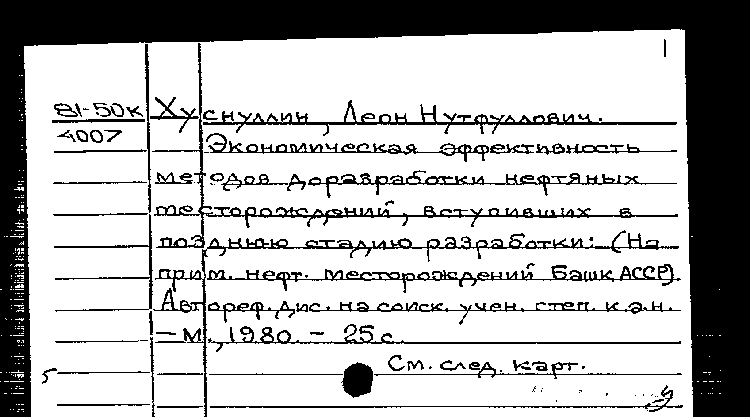 81-50к Хуснуллин, Леон Нутфуллович.
4007
Экономическая эффективность
методов доразработки нефтяных
месторождений, вступивших в
позднюю стадию разработки: (На
прим. нефт. месторождений Башк АССР).
Автореф. дис. на соиск. учен. степ. к.э.н.
— М., 1980. - 25 с.
См. след. карт.
5